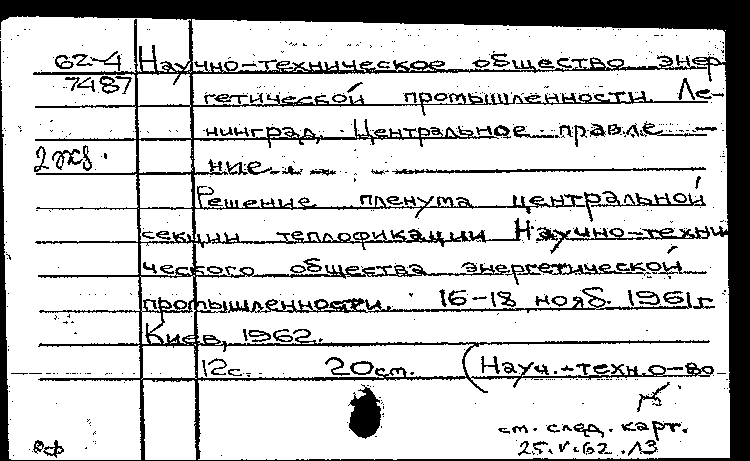 62-4 Научно-техническое общество энер-
7487 гетической промышленности. Ле-
нинград, Центральное правле-
2 экз. ние.
Решение пленума центральной
секции теплофикации Научно-техни
ческого общества энергетической
промышленности. 16-18 нояб. 1961 г.
Киев, 1962.
12с. 20см. (Науч.-техн. о-во
см. след. карт.
25.V.62. ЛЗ